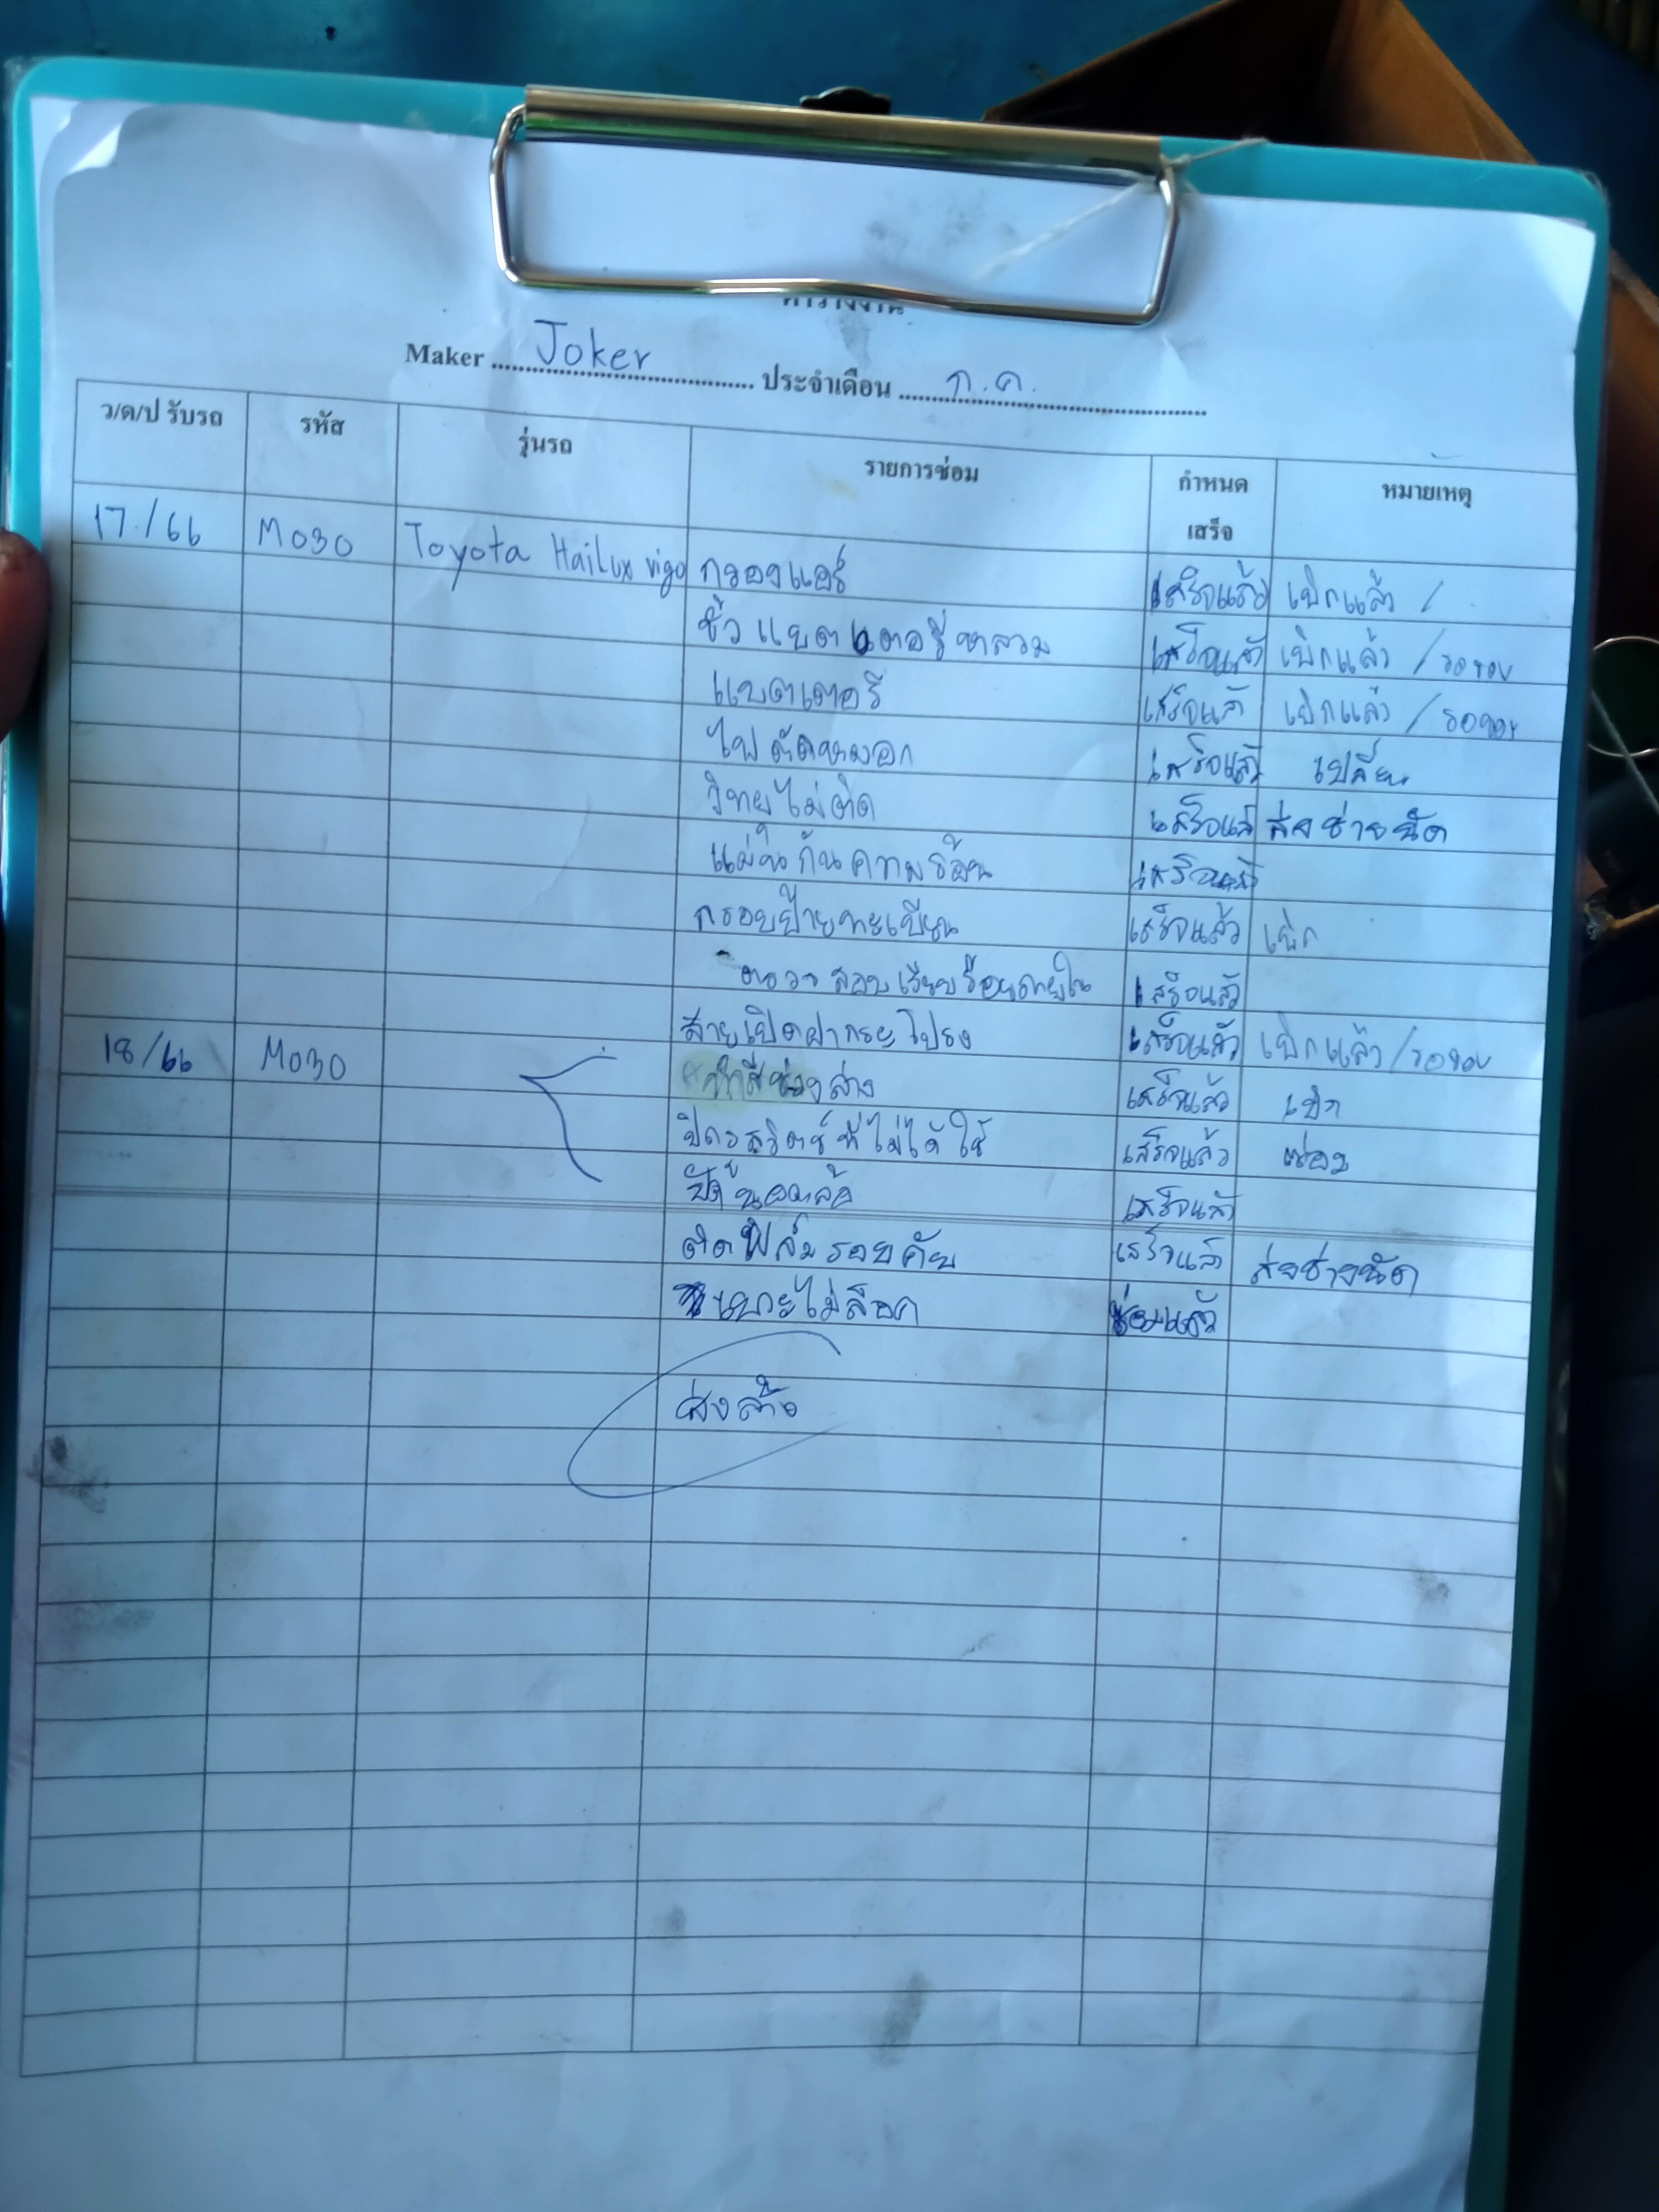 ตารางงาน
Maker Joker ประจำเดือน ก.ค.
ว/ด/ป รับรถ รหัส รุ่นรถ รายการซ่อม กำหนดเสร็จ หมายเหตุ
17/66 M030 Toyota Hailux vigo กรองแอร์ เสร็จแล้ว เบิกแล้ว /
ขั้วแบตเตอรี่หลวม เสร็จแล้ว เบิกแล้ว / รอของ
แบตเตอรี่ เสร็จแล้ว เบิกแล้ว / รอของ
ไฟตัดหมอก เสร็จแล้ว เปลี่ยน
วิทยุไม่ติด เสร็จแล้ว ส่งช่างนัด
แผ่นกันความร้อน เสร็จแล้ว
กรอบป้ายทะเบียน เสร็จแล้ว เบิก
ตรวจสอบเรียบร้อยภายใน เสร็จแล้ว
สายเปิดฝากระโปรง เสร็จแล้ว เบิกแล้ว / รอของ
18/66 M030 ทำสีช่วงล่าง เสร็จแล้ว เบิก
ปิดรูสวิตซ์ที่ไม่ได้ใช้ เสร็จแล้ว
เสร็จแล้ว
ติดฟิล์มรอบคัน เสร็จแล้ว ส่งช่างนัด
ไม่ล็อค ซ่อมแล้ว
ส่งล้าง